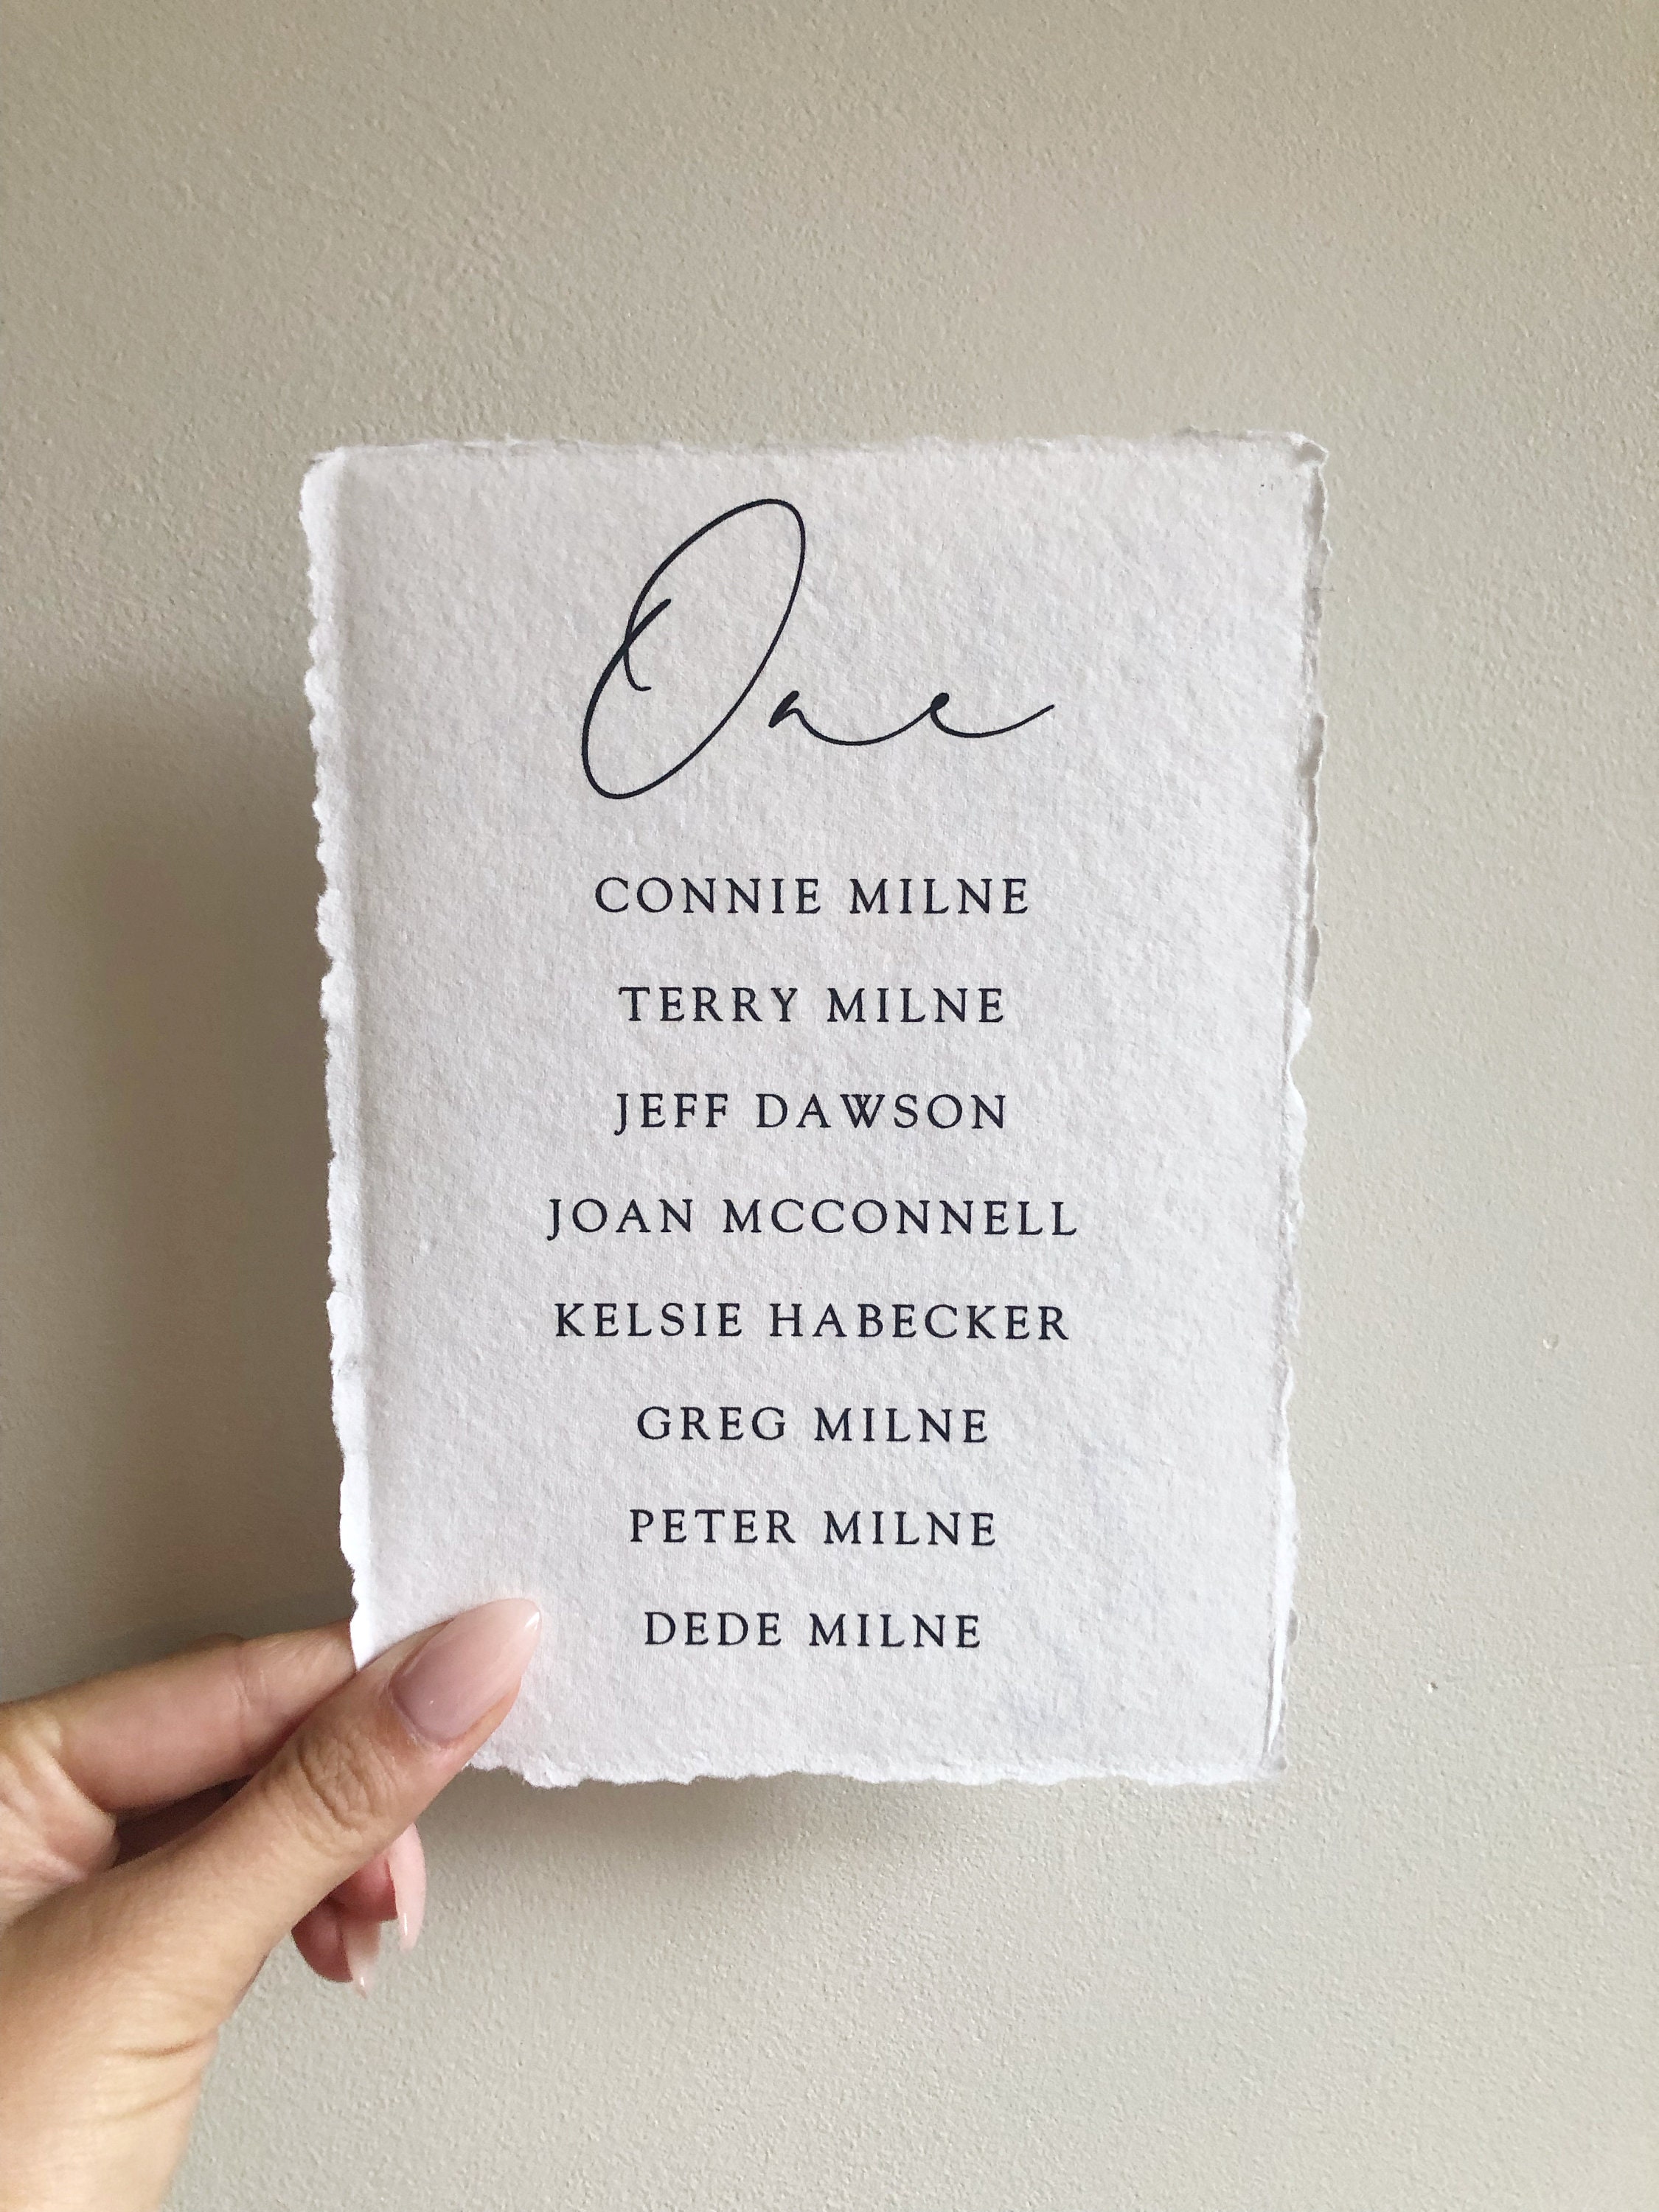 One
CONNIE MILNE
TERRY MILNE
JEFF DAWSON
JOAN MCCONNELL
KELSIE HABECKER
GREG MILNE
PETER MILNE
DEDE MILNE